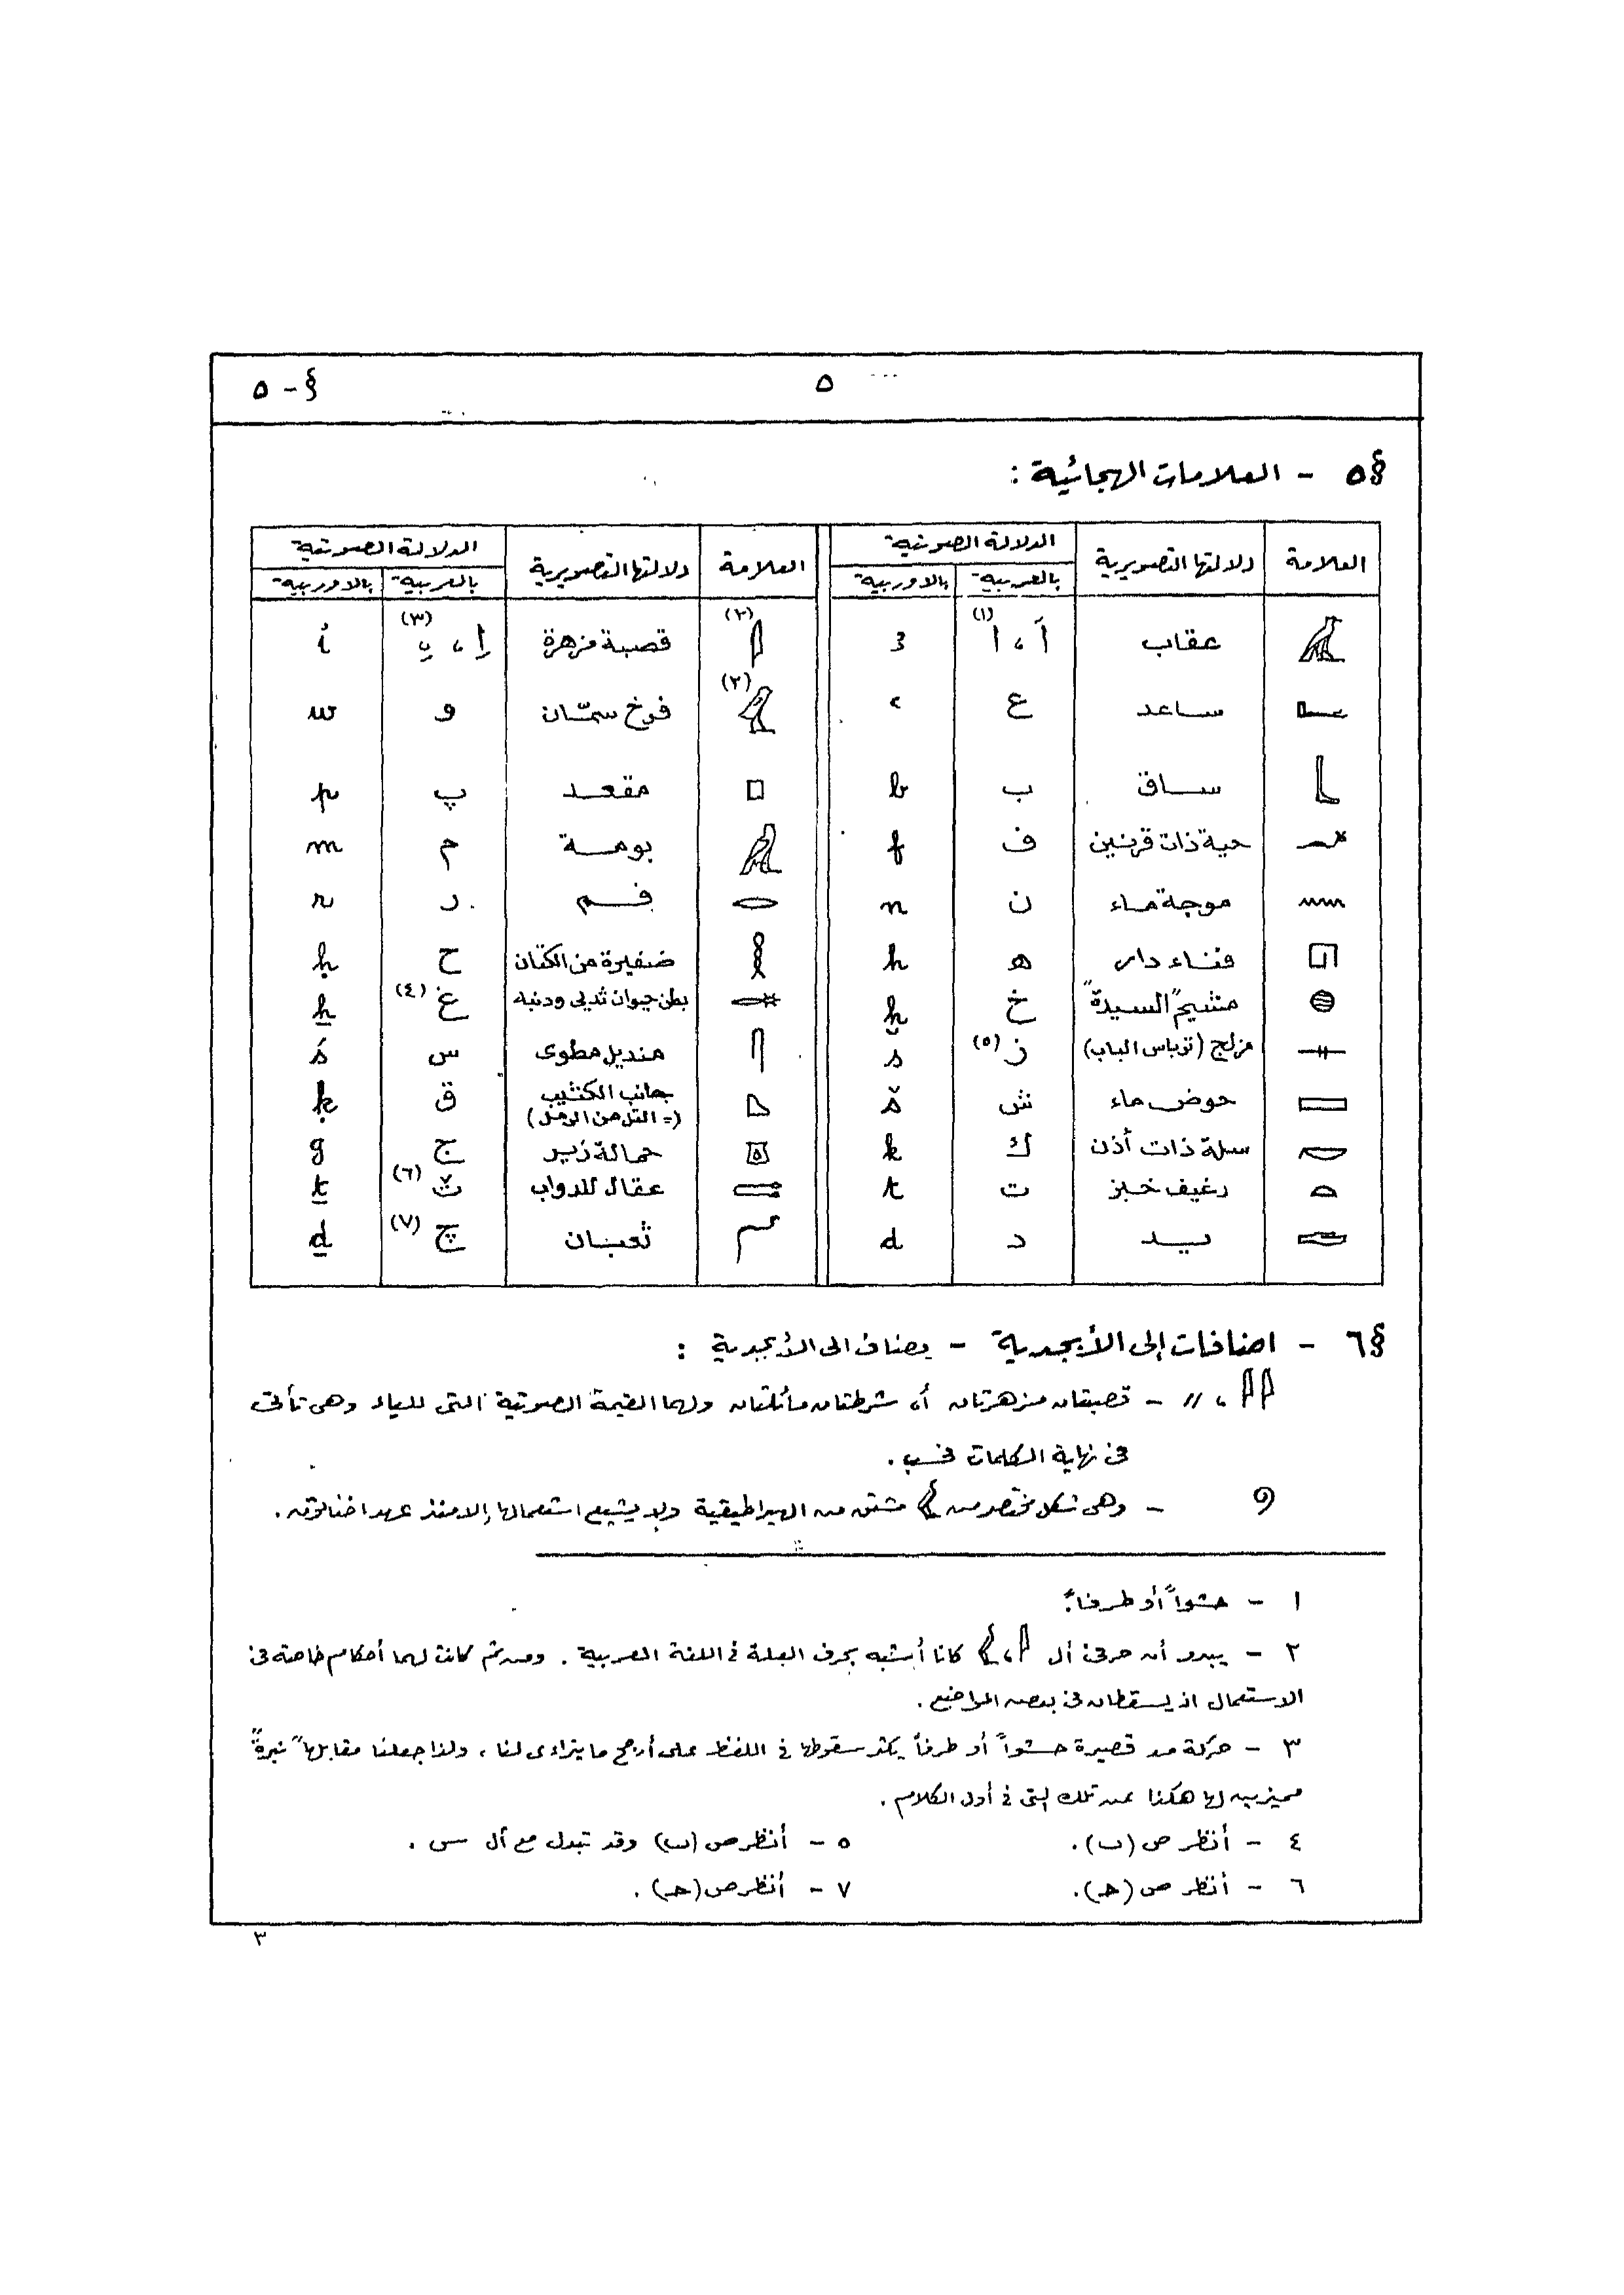 § - ٥
٥
§٥ - العلامات الهجائية :
العلامة | دلالتها التصويرية | الدلالة الصوتية | العلامة | دلالتها التصويرية | الدلالة الصوتية
بالعربية | بالاوربية | بالعربية | بالاوربية
𓄿 | عقاب | آ ، ا (١) | ꜣ | 𓇋 (٢) | قصبة مزهرة | إ ، ي (٣) | i̓
𓂝 | ساعد | ع | ꜥ | 𓅱 (٢) | فرخ سمّان | و | w
𓃀 | ساق | ب | b | 𓊪 | مقعد | پ | p
𓆑 | حية ذات قرنين | ف | f | 𓅓 | بومة | م | m
𓈖 | موجة ماء | ن | n | 𓂋 | فم | ر | r
𓉔 | فناء دار | ه | h | 𓎛 | ضفيرة من الكتّان | ح | ḥ
𓐍 | مشيم "السيدة" | خ | ḫ | 𓄡 | بطن حيوان ثديي وذنبه | غ (٤) | ẖ
𓊃 | مزلج (ترباس الباب) | ز (٥) | s | 𓋴 | منديل مطوى | س | ś
𓈙 | حوض ماء | ش | š | 𓈎 | جانب الكثيب (= التل من الرمل) | ق | ḳ
𓎡 | سلة ذات أذن | ك | k | 𓎼 | حمالة زير | ج | g
𓏏 | رغيف خبز | ت | t | 𓍿 | عقال للدواب | ث (٦) | ṯ
𓂧 | يد | د | d | 𓆓 | ثعبان | چ (٧) | ḏ
§٦ - اضافات إلى الأبجدية - يضاف الى الأبجدية :
𓇋𓇋 ، 〃 - قصبتان مزهرتان أو شرطتان مائلتان ولهما القيمة الصوتية التى للياء وهى تأتى
فى نهاية الكلمات فحسب .
𓏲 - وهى شكل مختصر من 𓅱 مشتق من الهيراطيقية ولا يشيع استعمالها إلا منذ عهد اخناتون .
١ - حشواً أو طرفاً.
٢ - يبدو أن حرفى أل 𓇋 ، 𓅱 كانا أشبه بحرف العلة فى اللغة العربية . ومن ثم كانت لهما أحكام خاصة فى
الاستعمال اذ يسقطان فى بعض المواضيع .
٣ - حركة مد قصيرة حشواً أو طرفاً يكثر سقوطها فى اللفظ على أرجح ما يتراءى لنا ، ولذا جعلنا مقابلها "نبرة"
مميزين لها هكذا عن تلك التى فى أول الكلام .
٤ - أنظر ص (ب) .
٥ - أنظر ص (ب) وقد تبدل مع أل س .
٦ - أنظر ص (حـ) .
٧ - أنظر ص (حـ) .
٣